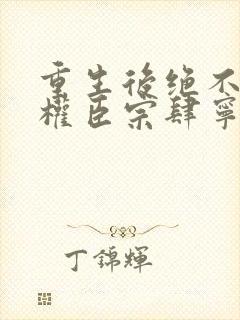 重生後绝不
權臣宗肆寧
丁錦輝